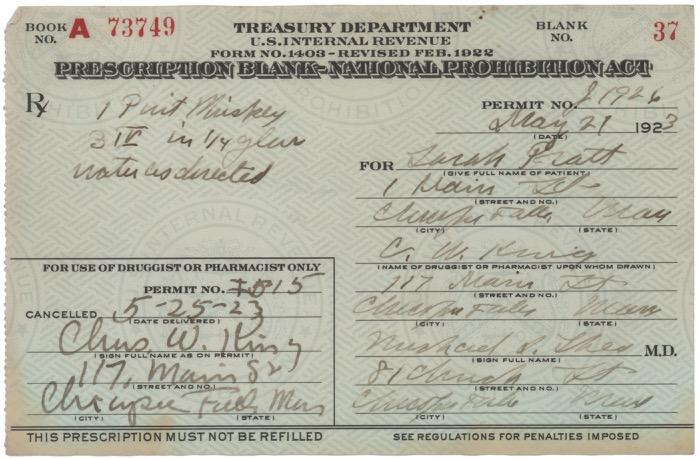 BOOK NO. A 73749
TREASURY DEPARTMENT
U.S. INTERNAL REVENUE
FORM NO. 1403 - REVISED FEB. 1922
BLANK NO. 37
PRESCRIPTION BLANK - NATIONAL PROHIBITION ACT
Rx
1 Pint Whiskey
ʒ IV in 1/4 glass
water as directed
PERMIT NO. 1926
May 21 1923
(DATE)
FOR Sarah Pratt
(GIVE FULL NAME OF PATIENT)
1 Main St
(STREET AND NO.)
Chicopee Falls Mass
(CITY) (STATE)
C. W. King
(NAME OF DRUGGIST OR PHARMACIST UPON WHOM DRAWN)
117 Main St
(STREET AND NO.)
Chicopee Falls Mass
(CITY) (STATE)
Michael Shea M.D.
(SIGN FULL NAME)
81 Church St
(STREET AND NO.)
Chicopee Falls Mass
(CITY) (STATE)
FOR USE OF DRUGGIST OR PHARMACIST ONLY
PERMIT NO. 815
CANCELLED 5-25-23
(DATE DELIVERED)
Chas W. King
(SIGN FULL NAME AS ON PERMIT)
117 Main St
(STREET AND NO.)
Chicopee Falls Mass
(CITY) (STATE)
THIS PRESCRIPTION MUST NOT BE REFILLED
SEE REGULATIONS FOR PENALTIES IMPOSED